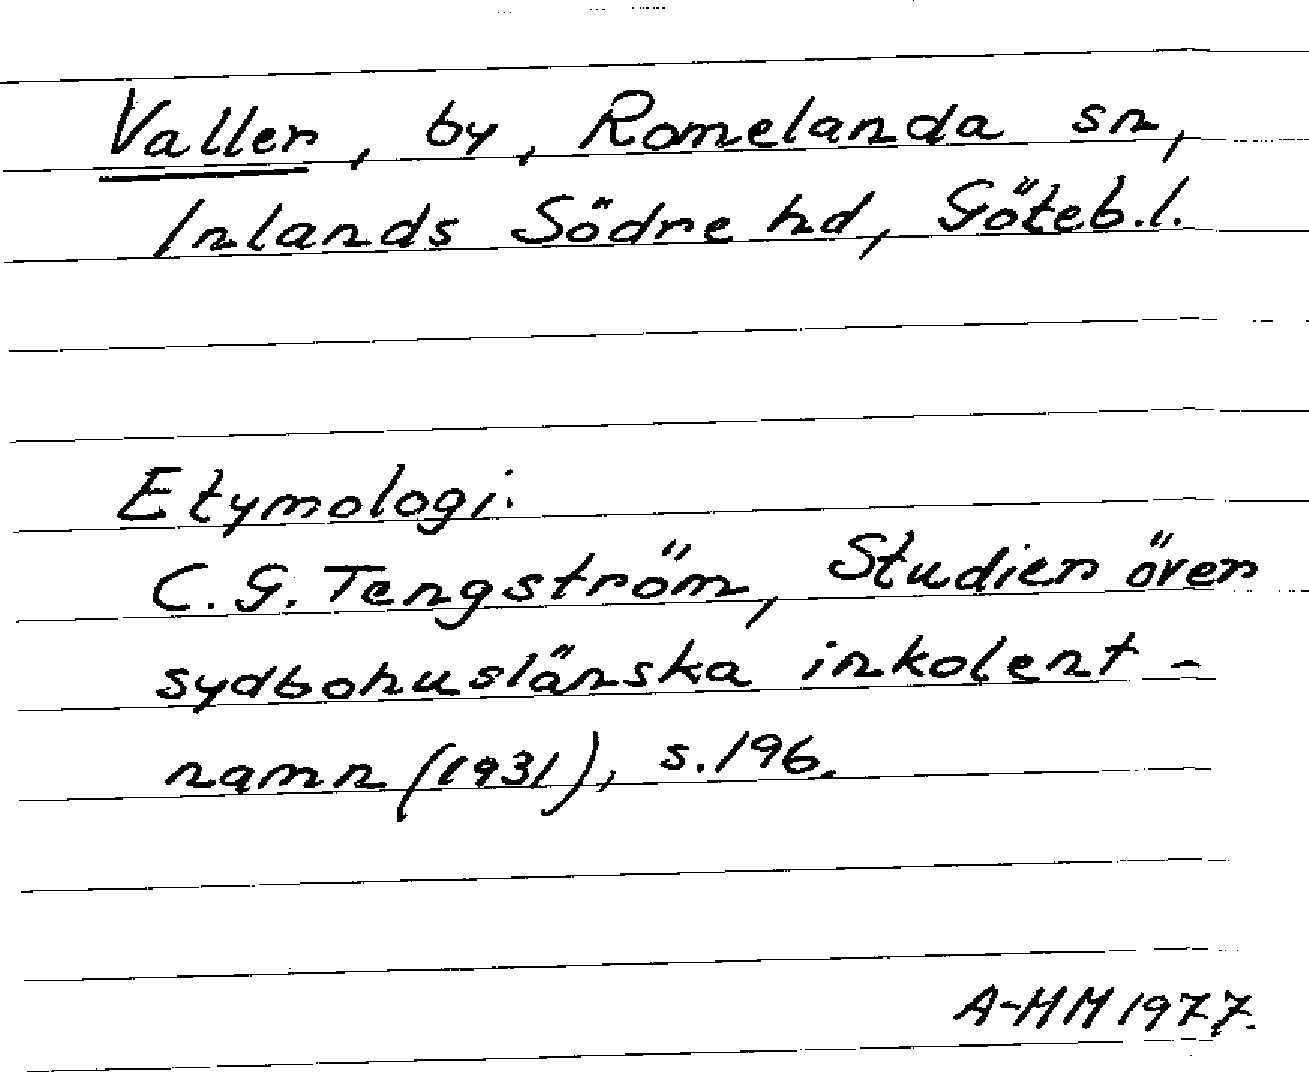 Valler, by, Romelanda sn,
Inlands Södre hd, Göteb.l.
Etymologi.
C.G. Tengström, Studier över
sydbohuslänska inkolent-
namn (1931), s.196.
A-HM 1977.